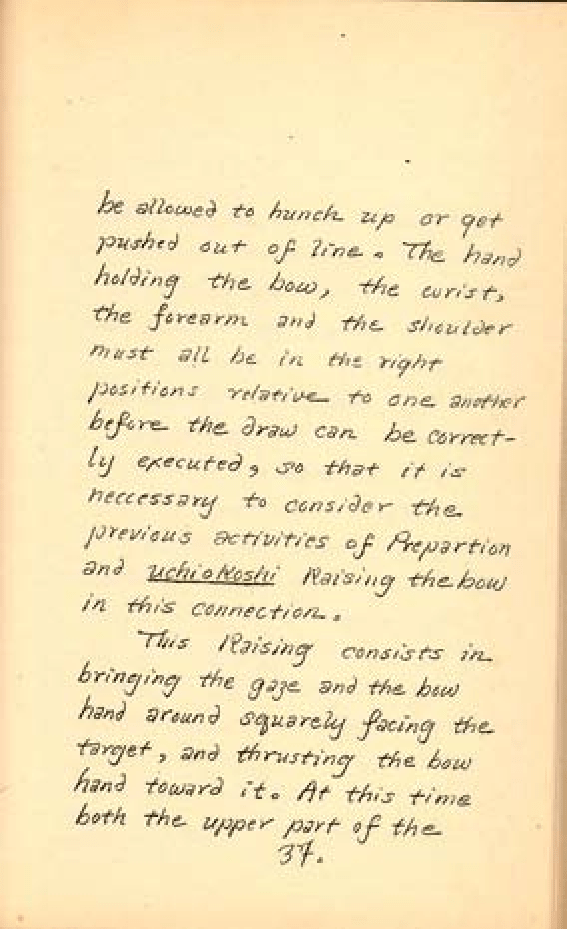 be allowed to hunch up or get
pushed out of line. The hand
holding the bow, the wrist,
the forearm and the shoulder
must all be in the right
positions relative to one another
before the draw can be correct-
ly executed, so that it is
neccessary to consider the
previous activities of Prepartion
and uchiokoshi Raising the bow
in this connection.
This Raising consists in
bringing the gaze and the bow
hand around squarely facing the
target, and thrusting the bow
hand toward it. At this time
both the upper part of the
37.